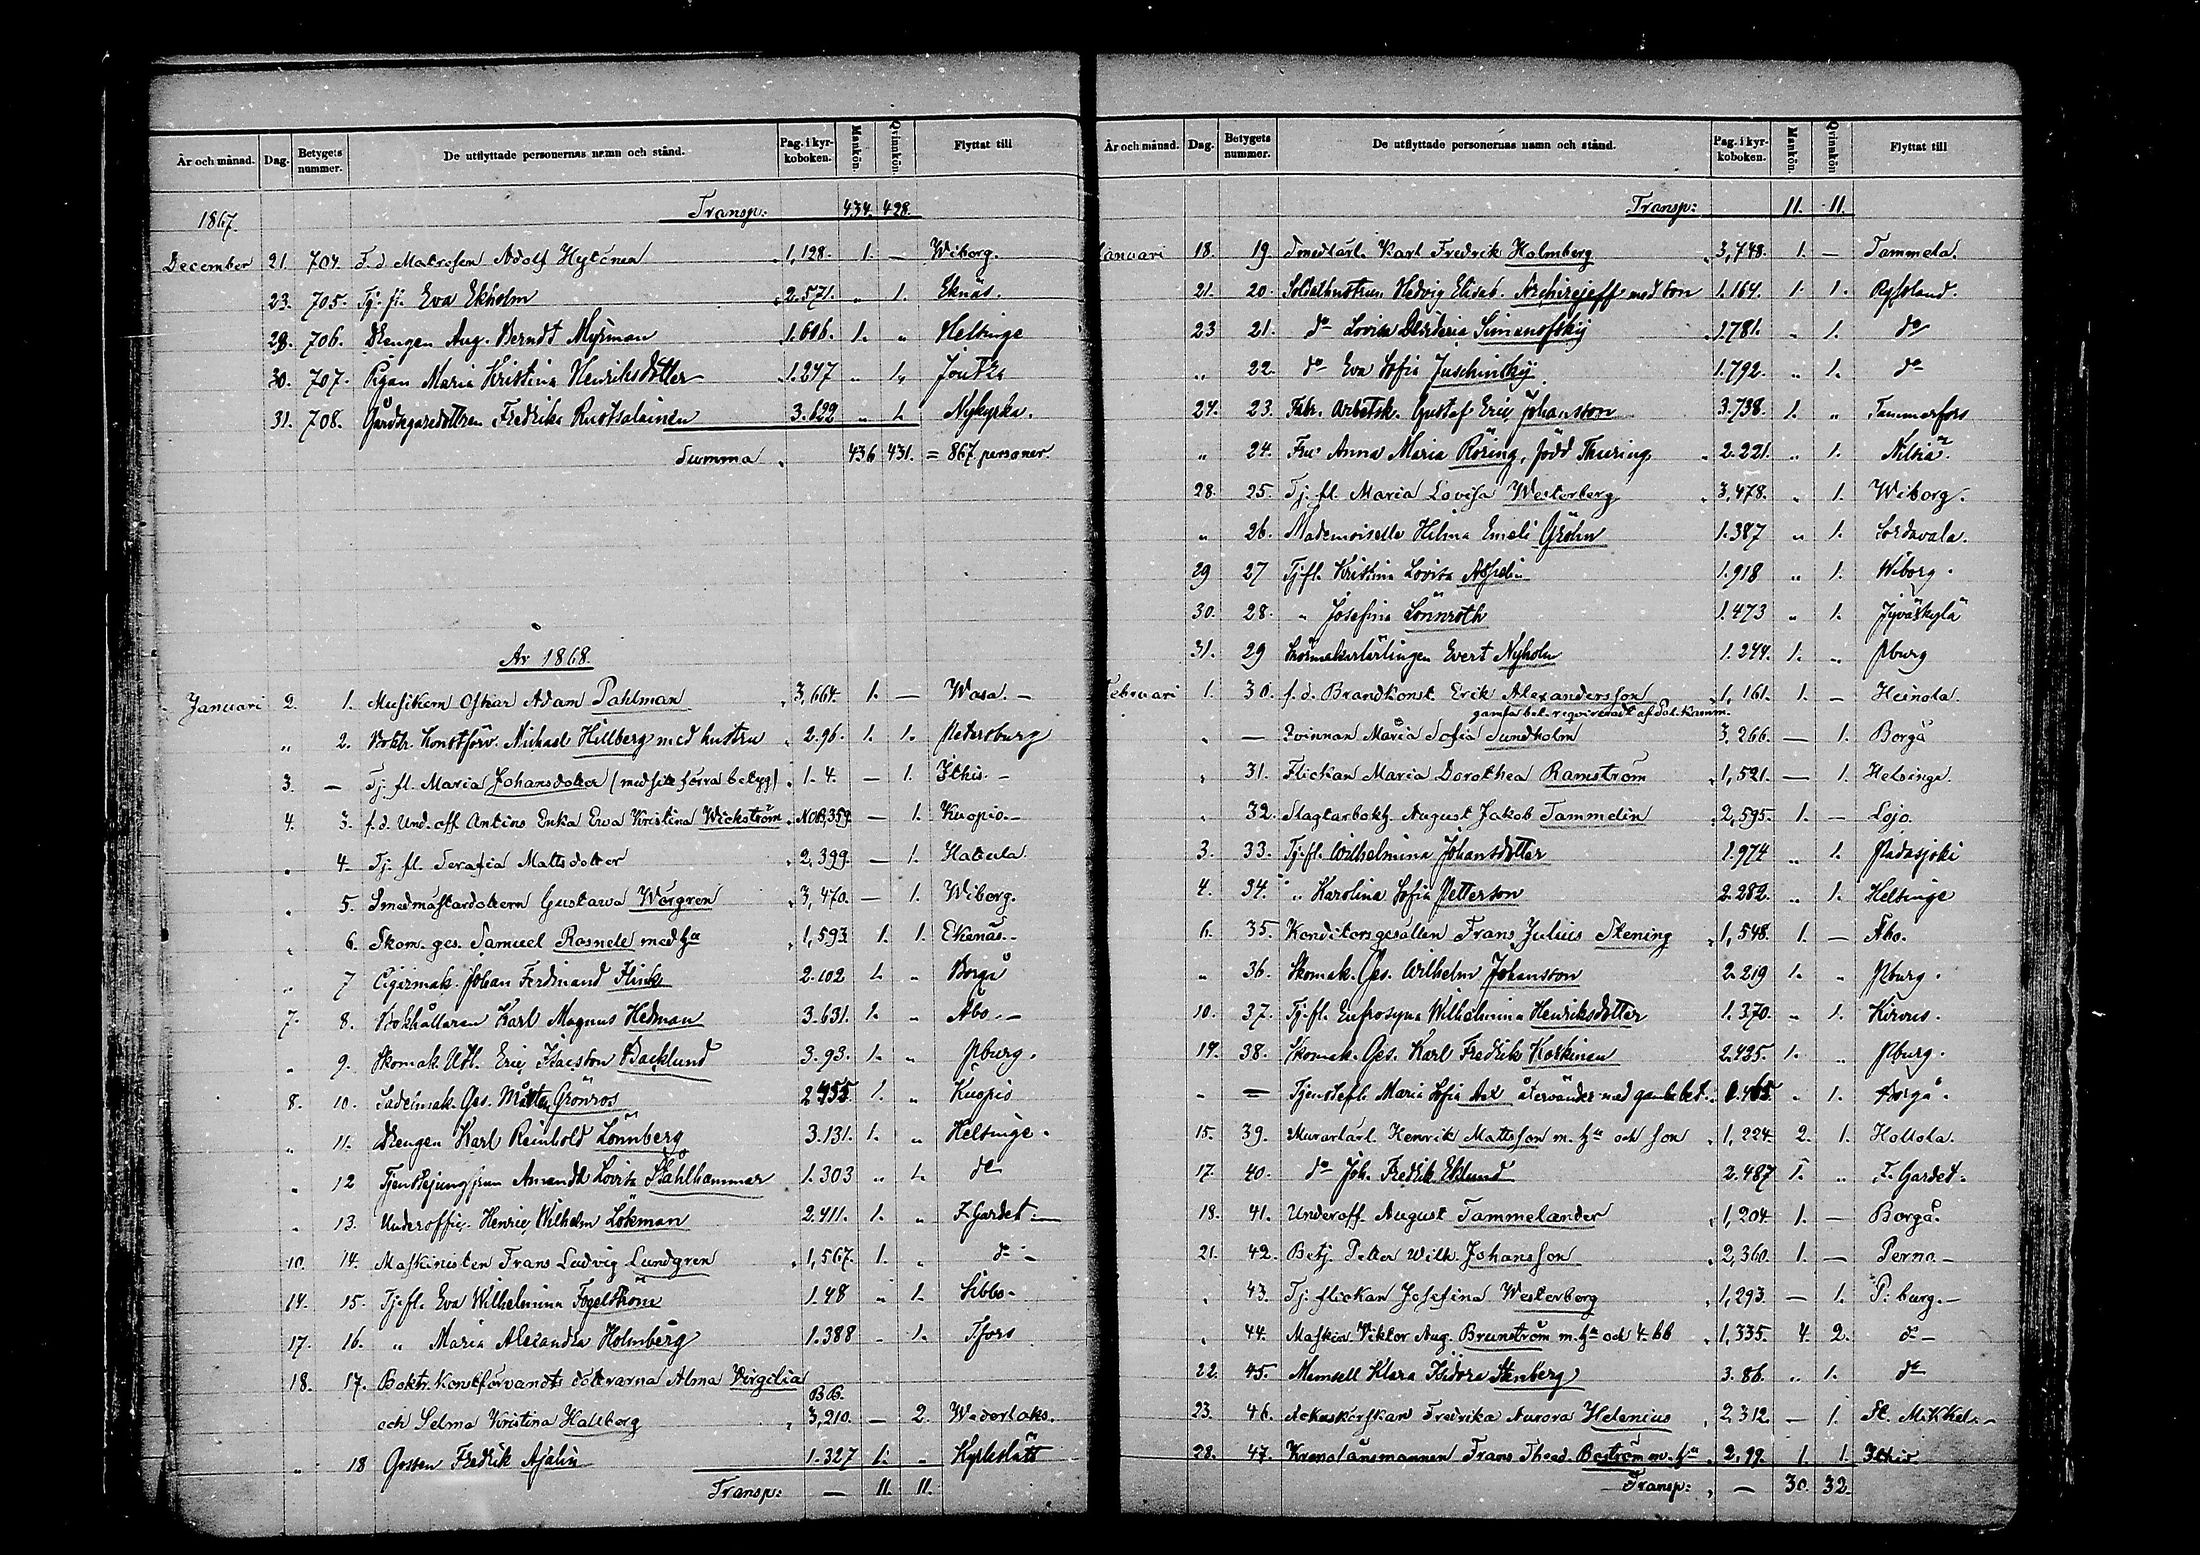 År och månad. Dag. Betygets nummer. De utflyttade personernas namn och stånd. Pag. i kyrkoboken. Mankön. Qvinnkön. Flyttat till
1867. Transp: 434. 428.
December 21. 704. F. d Matrosen Adolf Hyténen 1,128. 1. — Wiborg.
23. 705. Tj. fl. Eva Ekholm 2.571. " 1. Eknäs.
29. 706. Drengen Aug. Berndt Myrman 1.606. 1. " Helsinge
30. 707. Pigan Maria Kristina Henriksdotter 1.247 " 1.
31. 708. Gårdegaredottren Fredrika Ruotsalainen 3.622 " 1. Nykyrka.
Summa 436 431. = 867 personer.
År 1868.
Januari 2. 1. Musikern Oskar Adam Pahlman 3,664. 1. — Wasa. —
" 2. Boktr. Konstförv. Michael Hillberg med hustru 2.96. 1. 1. Petersburg
3. — Tj. fl. Maria Johansdotter (med sitt förra betyg) 1. 4. — 1. Ithis. —
4. 3. f. d. Und. off. Antins Enka Ewa Kristina Wickström 359 — 1. Kuopio. —
" 4. Tj. fl. Serafia Mattsdotter 2,399. — 1. Hattula.
" 5. Smedmästardottern Gustawa Wärgren 3,470. — 1. Wiborg.
" 6. Skom. ges. Samuel Rosnele med hu 1,593 1. 1. Ekenäs. —
" 7 Cigarrmak. Johan Ferdinand Flink 2.102 1. " Borgå
7. 8. Bokhållaren Karl Magnus Hedman 3.631. 1. " Åbo. —
" 9. Skomak. Eric Isacsson Backlund 3.93. 1. " Pburg.
8. 10. Sadelmak. Ges. Mårten Grönros 2.455 1. " Kuopio
" 11. Drengen Karl Reinhold Lönnberg 3.131. 1. " Helsinge.
" 12 Tjenstejungfrun Amanda Lovisa Stålhammar 1.303 " 1. do
" 13. Underoffic. Henric Wilhelm Lökman 2.411. 1. " F. Gardet —
10. 14. Maskinisten Frans Ludvig Lundgren 1,567. 1. " do —
14. 15. Tj. fl. Eva Wilhelmina Fogelström 1.48 " 1. Sibbo.
17. 16. " Maria Alexandra Holmberg 1.388 " 1. Tfors
18. 17. Boktr. Konstförvandts döttrarna Alma Virgilia
och Selma Kristina Hallberg BB. 3,210. — 2. Wederlaks.
" 18 Gossen Fredrik Asjelin 1.327 1. " Kyrkslätt
Transp: — 11. 11.
År och månad. Dag. Betygets nummer. De utflyttade personernas namn och stånd. Pag. i kyrkoboken. Mankön. Qvinnkön Flyttat till
Transp: 11. 11.
Januari 18. 19. Smedlärl. Karl Fredrik Holmberg 3,748. 1. — Tammela.
21. 20. Soldathustrun Hedvig Elisab. Archirejeff med son 1.164. 1. 1. Ryssland.
23 21. do Lovisa Simanofskij 1.781. " 1. do
" 22. do Eva Sofia Juschinskij 1.792. " 1. do
24. 23. Fabr. Arbetsk. Gustaf Eric Johansson 3.738. 1. " Tammerfors
" 24. Fru Anna Maria Röring, född Thuring 2.221. " 1. Nilsiä.
28. 25. Tj. fl. Maria Lovisa Westerberg 3,478. " 1. Wiborg.
" 26. Mademoiselle Hilma Emeli Gröhn 1.387 " 1. Sordavala.
29 27 Tj. fl. Kristina Lovisa Aspelin 1.918 " 1. Wiborg.
30. 28. " Josefina Lönnroth 1.473 " 1. Jyväskylä
31. 29 Skomakarlärlingen Evert Nyholm 1.244. 1. " Pburg
Februari 1. 30. f. d. Brandkonst. Erik Alexandersson 1,161. 1. — Heinola.
gamla bet. requireradt af Pol. Kamm.
" — Qvinnan Maria Sofia Sundholm 3.266. — 1. Borgå
" 31. Flickan Maria Dorothea Ramström 1,521. — 1. Helsinge.
" 32. Slagtarbokh. August Jakob Tammelin 2,595. 1. — Lojo.
3. 33. Tj. fl. Wilhelmina Johansdotter 1.974 " 1. Padasjoki
4. 34. " Karolina Sofia Petterson 2.282. " 1. Helsinge
6. 35. Konditorsgesällen Frans Julius Stening 1,548. 1. — Åbo.
" 36. Skomak. Ges. Wilhelm Johansson 2.219 1. " Pburg.
10. 37. Tj. fl. Eufrosyna Wilhelmina Henriksdotter 1.370. " 1. Kirvus.
14. 38. Skomak. Ges. Karl Fredrik Koskinen 2.425. 1. " Pburg.
" — Tjenstefl. Maria Sofia Ax återvänder med gamla bet. 1.465 " 1. Borgå.
15. 39. Murarlärl. Henrik Mattsson m. hu och son 1,224. 2. 1. Hollola.
17. 40. do Joh. Fredrik Eklund 2.487 1. " F. Gardet.
18. 41. Underoff. August Tammelander 1,204 1. — Borgå.
21. 42. Betj. Petter Wilh. Johansson 2,360. 1. — Perno. —
" 43. Tj. flickan Josefina Westerborg 1,293. — 1. P:burg. —
" 44. Maskin. Viktor Aug. Brunström m. hu och 4. bb 1,335. 4. 2. do —
22. 45. Mamsell Klara Isidora Stenberg 3.86. " 1. do
23. 46. Fredrika Aurora Helenius 2,312. — 1. St. Mikkel. —
28. 47. Kronolänsmannen Frans Theod. Boström m. hu 2,99. 1. 1. Ithis
Transp: — 30. 32.